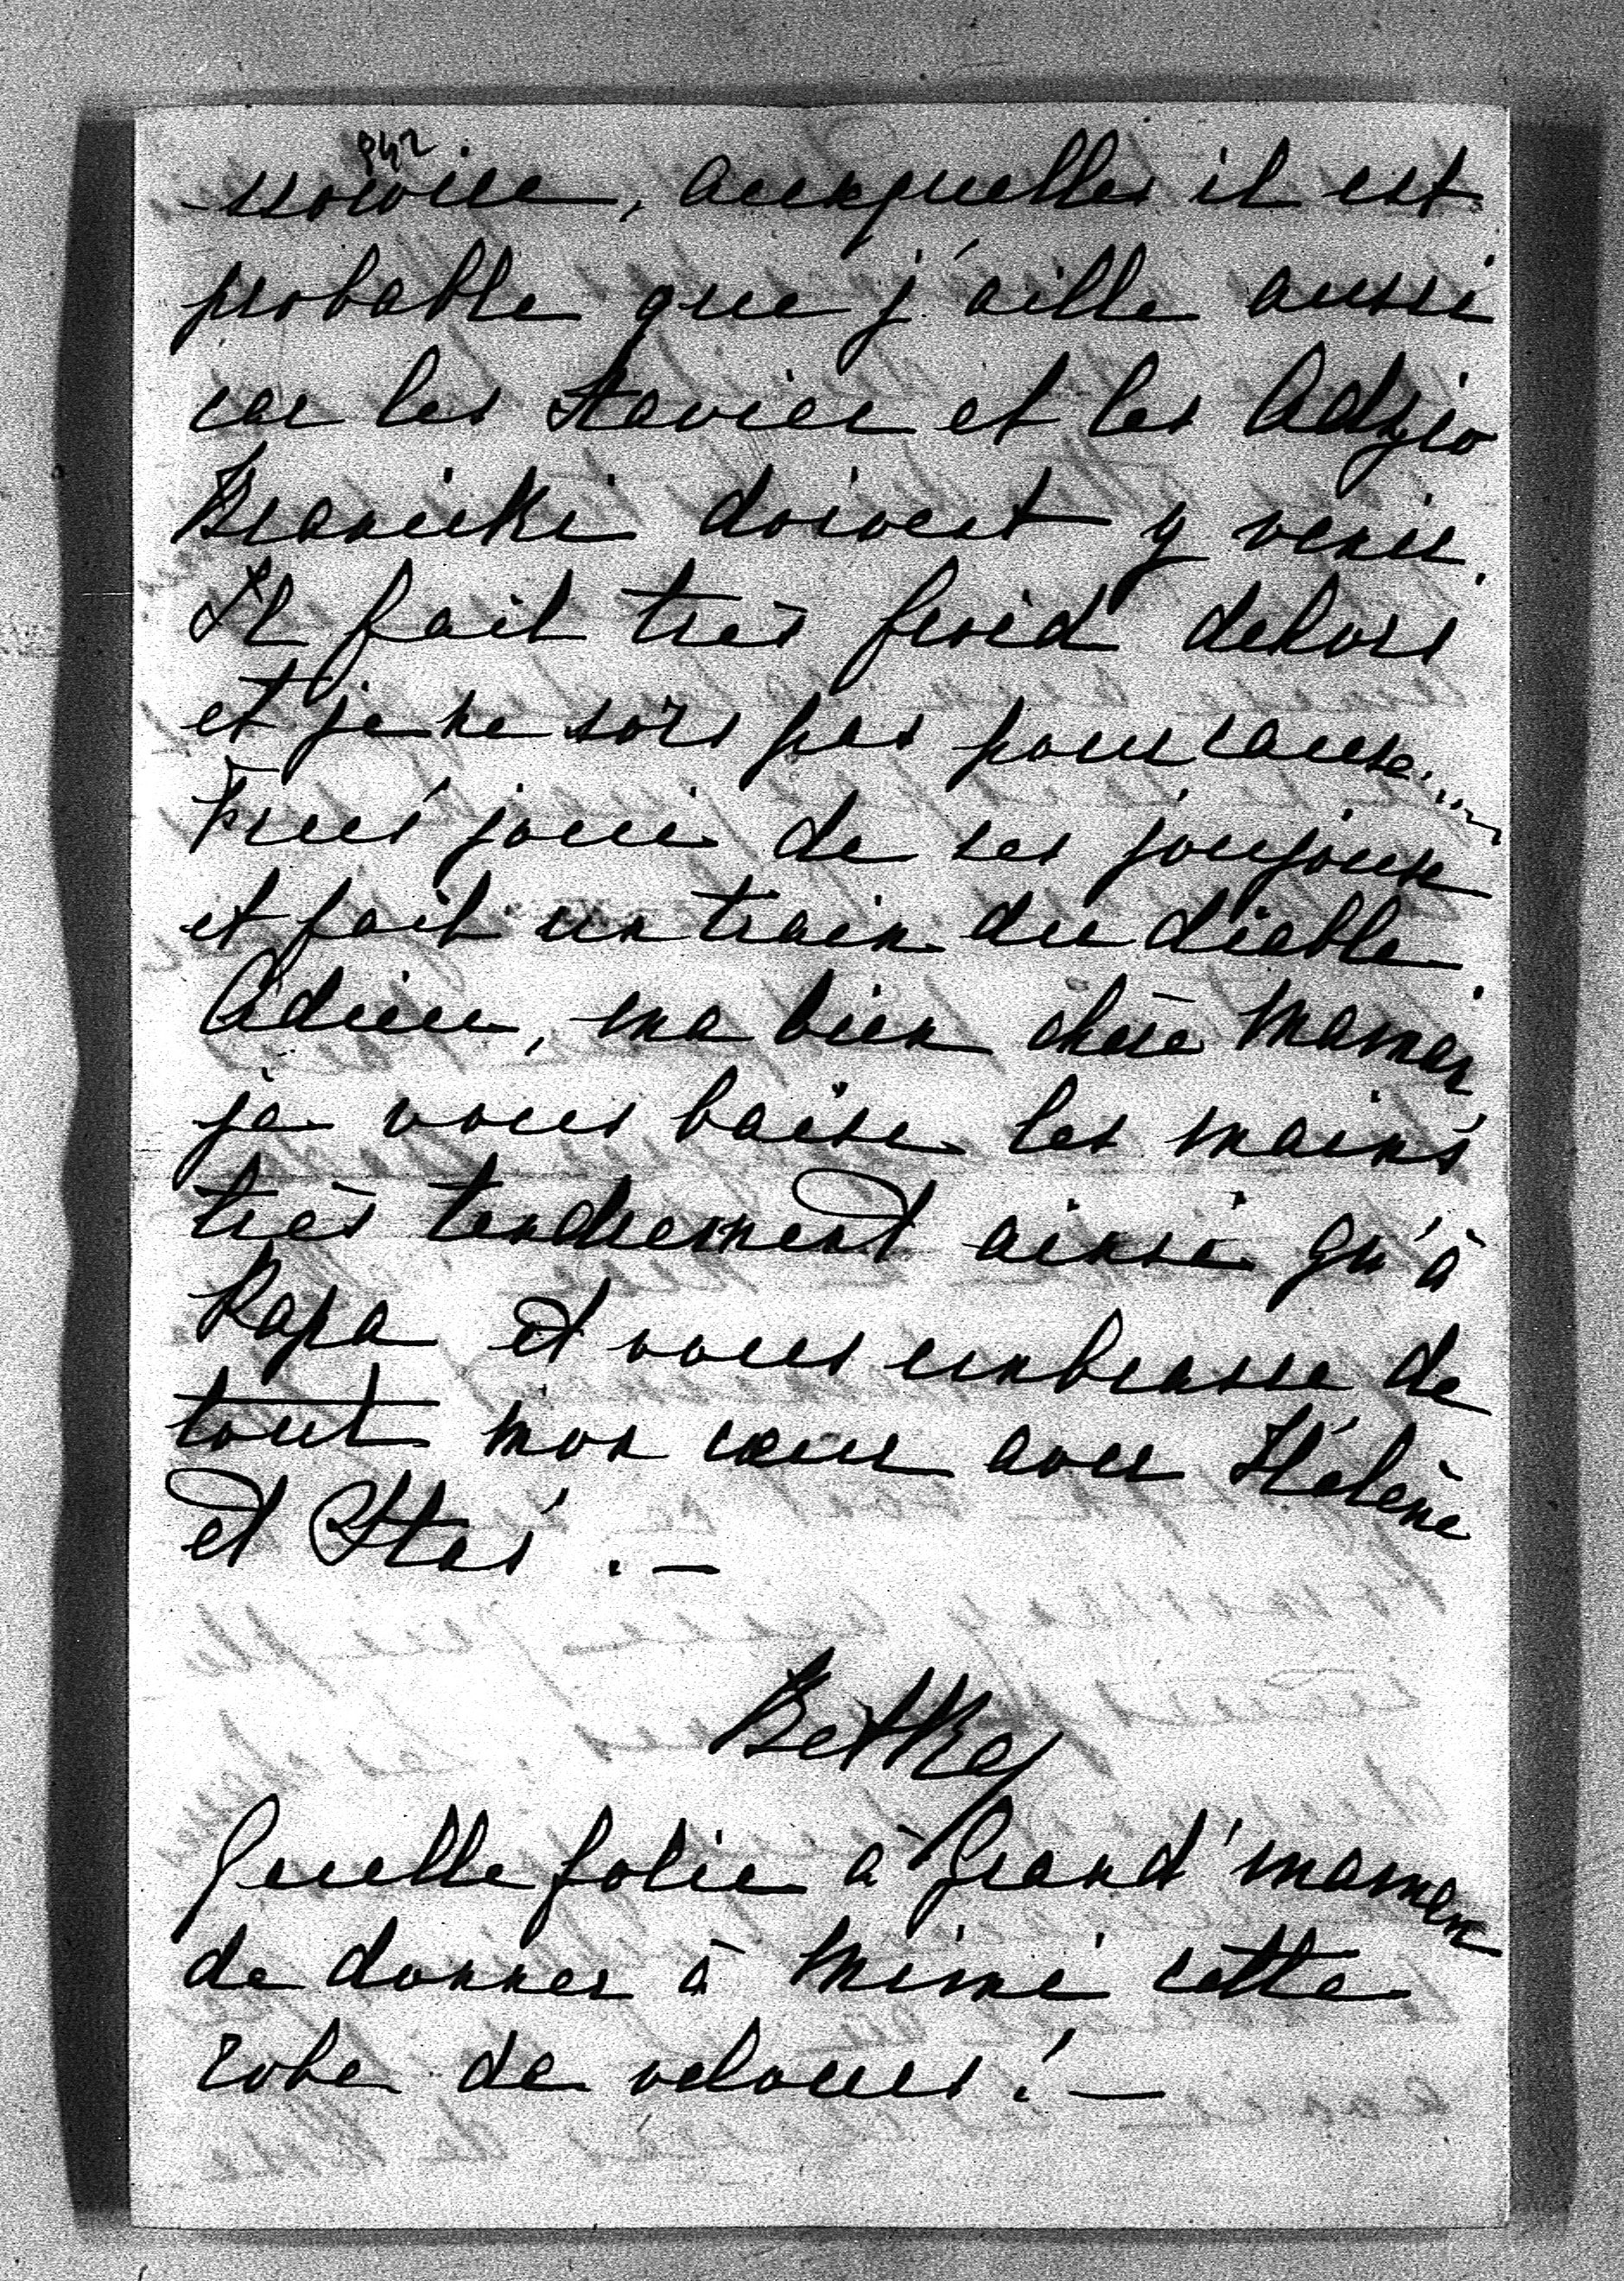 -ssowice, auxquelles il est
probable que j'aille aussi
car les Xavier et les Adzio
Branicki doivent y venir.
Il fait très froid dehors
et je ne sors pas pour cause....
joue de ses joujoux
et fait un train du diable.
Adieu, ma bien chère Maman,
je vous baise les mains
très tendrement ainsi qu'à
Papa et vous embrasse de
tout mon cœur avec Hélène
et Stas'. —
Betka
Quelle folie à Grand'maman
de donner à Mimi cette
robe de velours! —